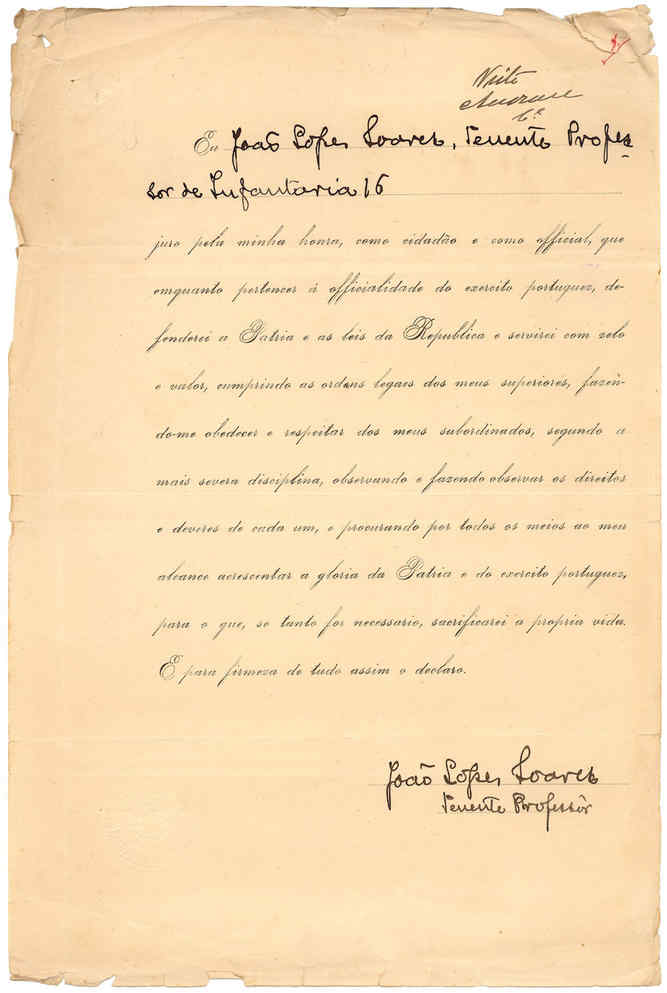 Visto
Eu João Lopes Soares, Tenente Profes-
sor de Infantaria 16
juro pela minha honra, como cidadão e como official, que
emquanto pertencer á officialidade do exercito portuguez, de-
fenderei a Patria e as leis da Republica e servirei com zelo
e valor, cumprindo as ordens legaes dos meus superiores, fazen-
do-me obedecer e respeitar dos meus subordinados, segundo a
mais severa disciplina, observando e fazendo observar os direitos
e deveres de cada um, e procurando por todos os meios ao meu
alcance acrescentar a gloria da Patria e do exercito portuguez,
para o que, se tanto for necessario, sacrificarei a propria vida.
E para firmeza de tudo assim o declaro.
João Lopes Soares
Tenente Professôr